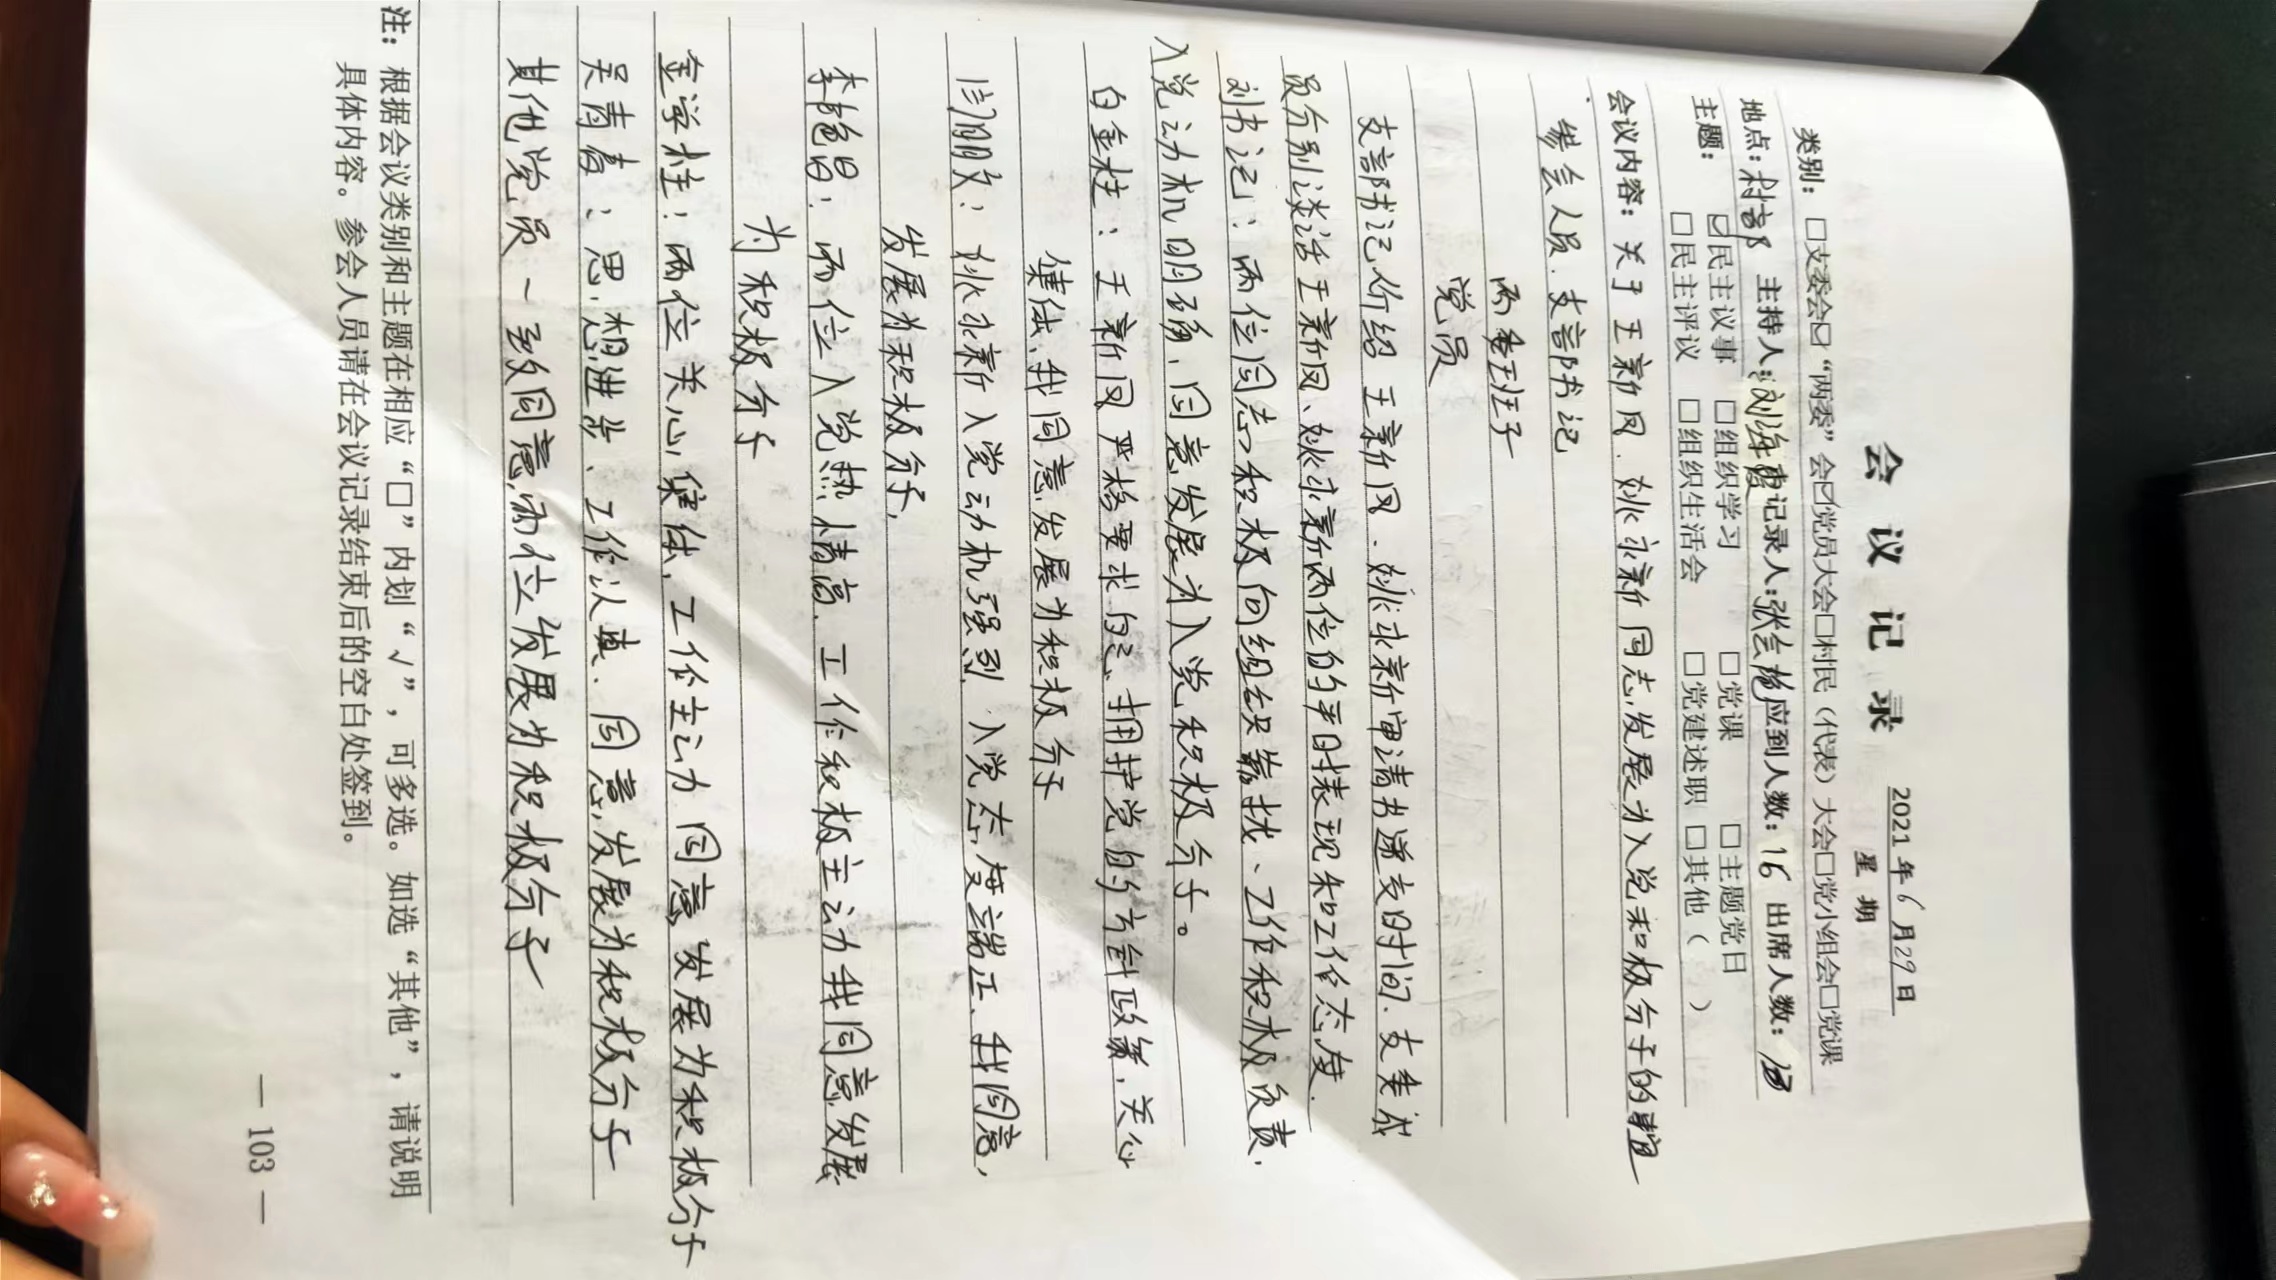 会议记录
2021年6月29日
星期
类别：□支委会☑“两委”会☑党员大会□村民（代表）大会□党小组会□党课
地点：村部 主持人：刘海霞 记录人：张会艳 应到人数：16 出席人数：
主题：☑民主议事 □组织学习 □党课 □主题党日
□民主评议 □组织生活会 □党建述职 □其他（ ）
会议内容：关于王新凤、姚永新同志发展为入党积极分子的
参会人员：支部书记
两委班子
党员
支部书记介绍王新凤、姚永新申请书递交时间、支委成
员分别谈话王新凤、姚永新两位的平时表现和工作态度.
刘书记：两位同志积极向组织靠拢、工作积极负责.
入党动机明确、同意发展为入党积极分子。
白金柱：王新凤严格要求自己、拥护党的方针政策，关心
集体，我同意发展为积极分子
闫朋欣：姚永新入党动机强烈，入党态度端正、我同意，
发展为积极分子，
李艳昌：两位入党热情高、工作积极主动我同意发展
为积极分子
金学柱：两位关心集体，工作主动 同意发展为积极分子
吴青春：思想进步、工作认真、同意发展为积极分子
其他党员一致同意两位发展为积极分子
注：根据会议类别和主题在相应“□”内划“√”，可多选。如选“其他”，请说明
具体内容。参会人员请在会议记录结束后的空白处签到。
— 103 —